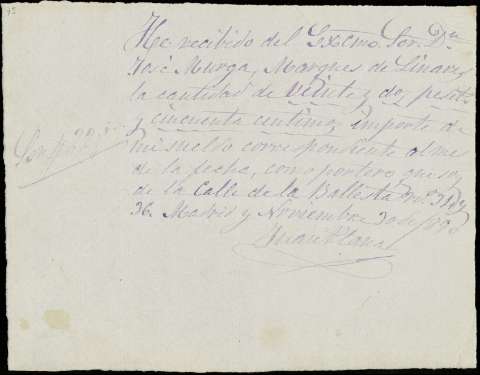 He recibido del Excmo. Sor. Dn
José Murga, Marques de Linares
la cantidad de veinte y dos pesetas
y cincuenta centimos, importe de
mi sueldo correspondiente al mes
de la fecha, como portero que soy
de la Calle de la Ballesta
36. Madrid y Noviembre 30 de
Juan
Son